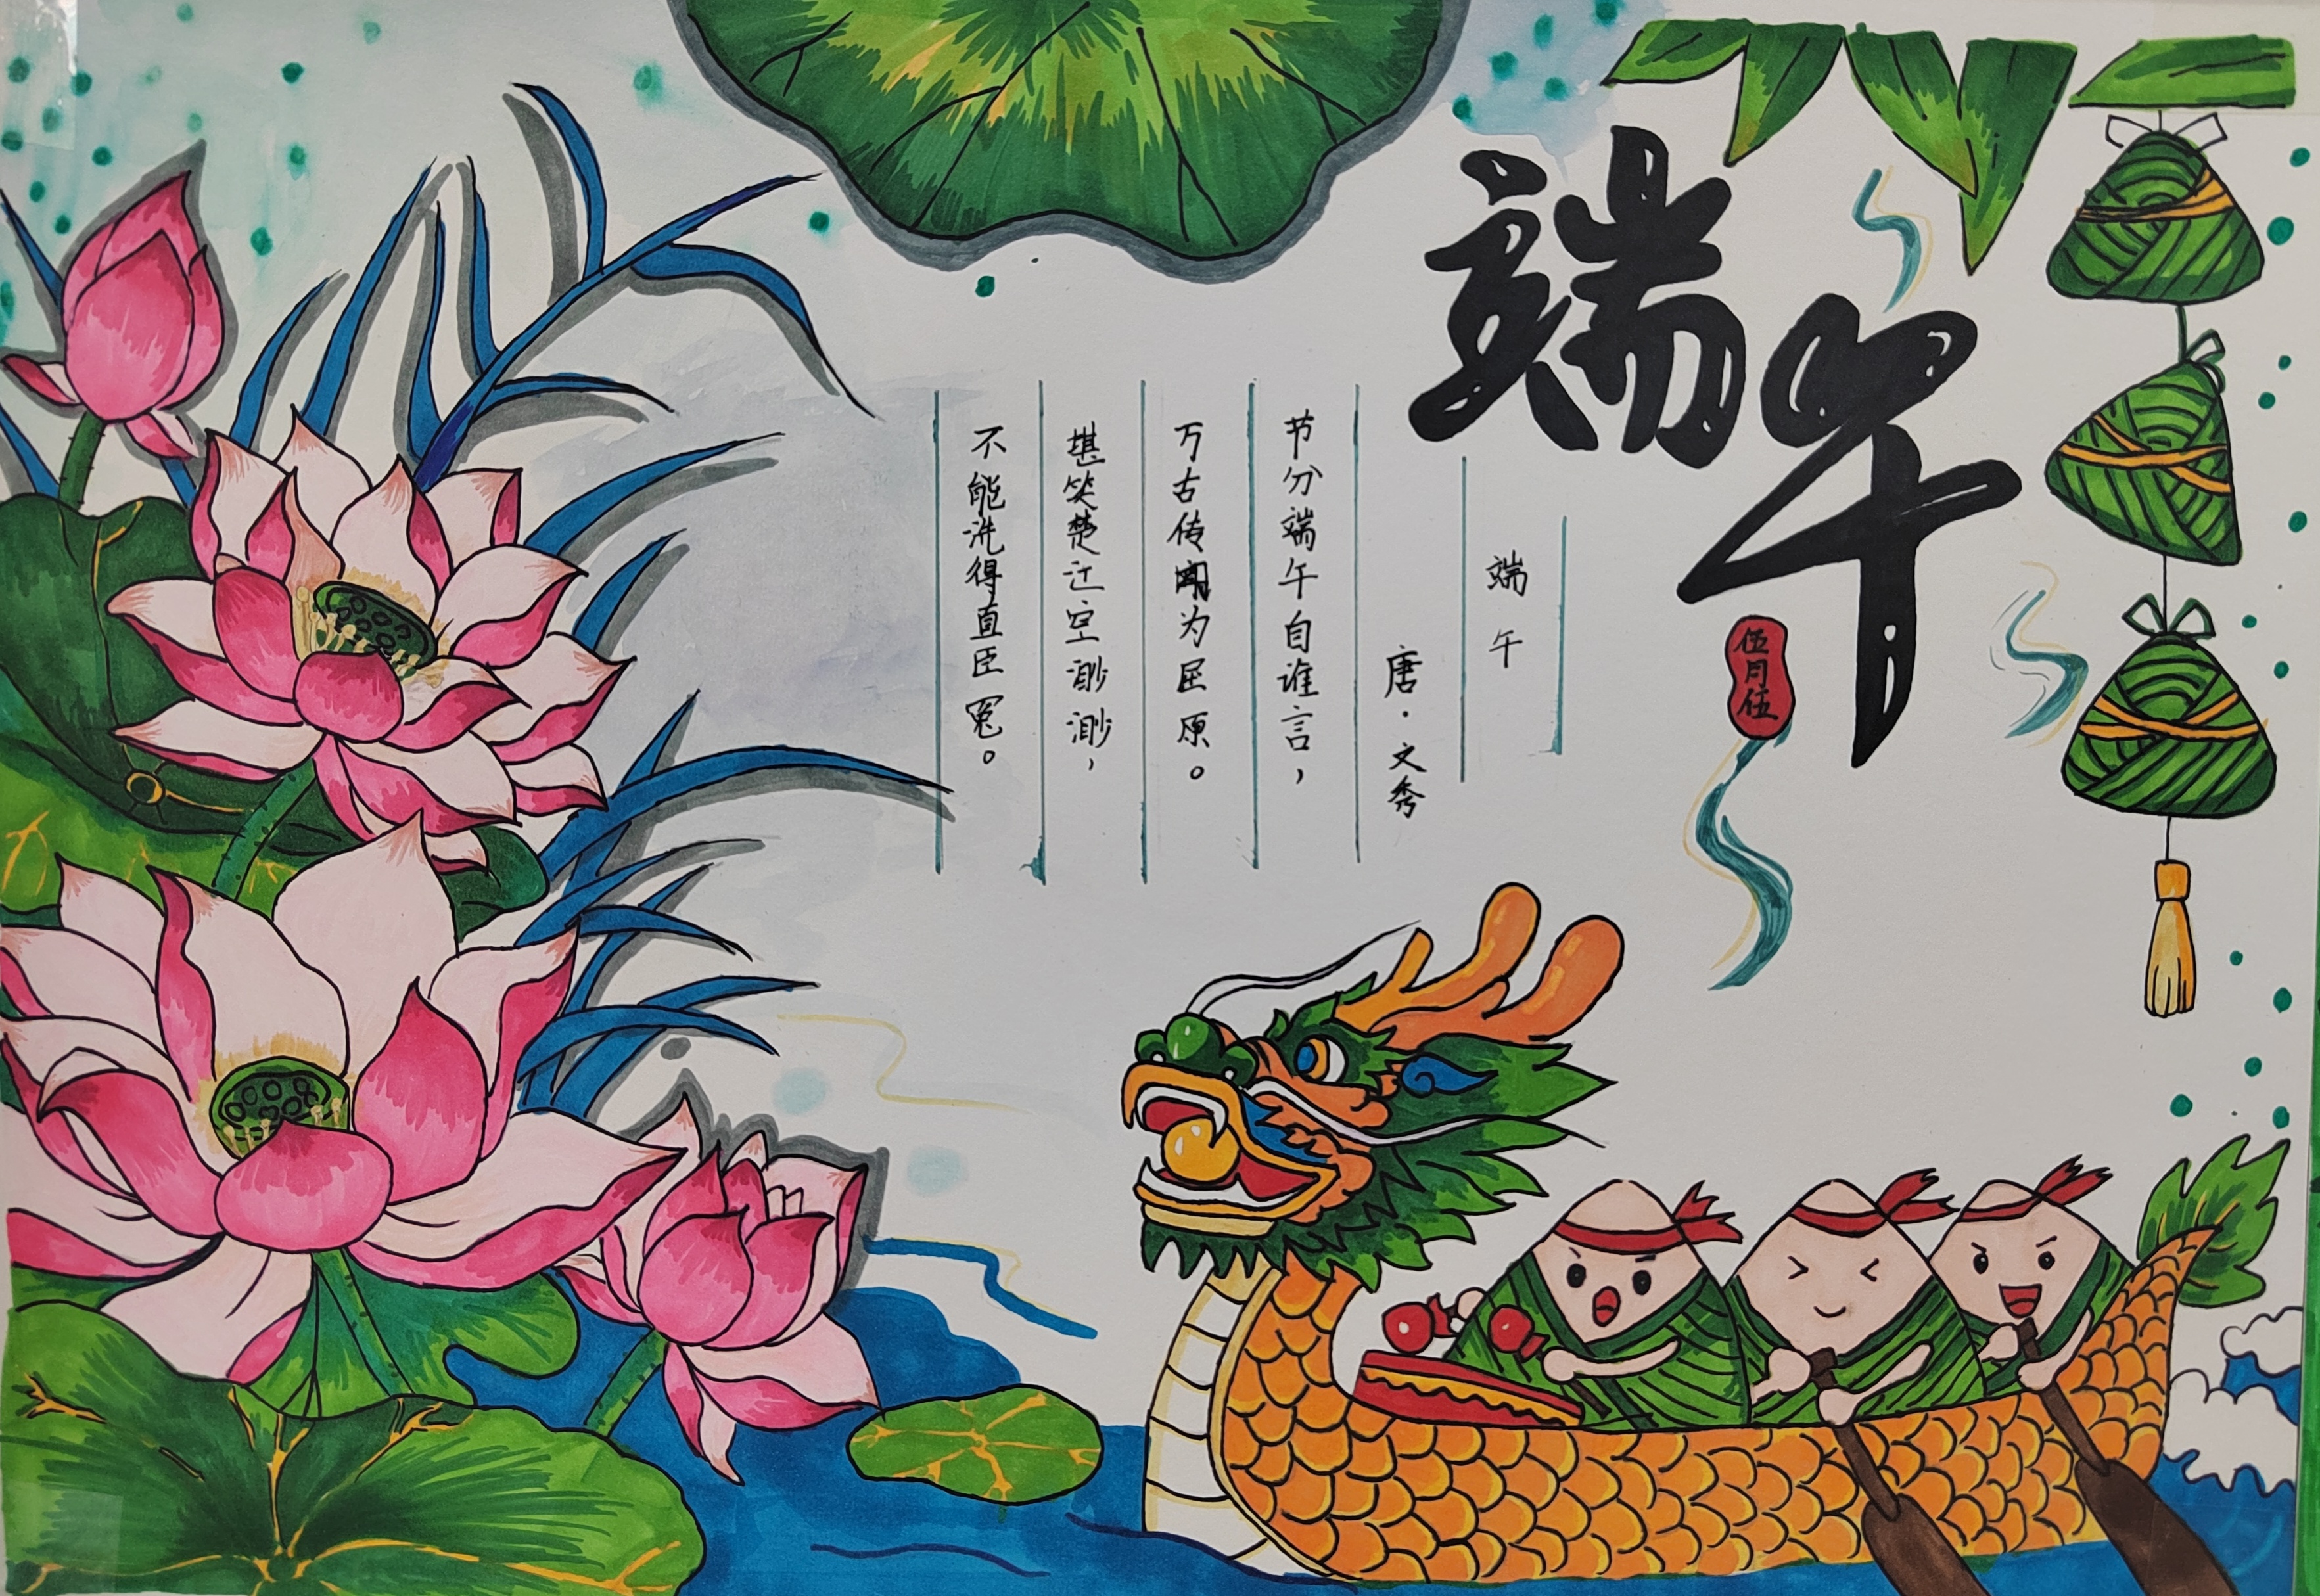 端午
伍月伍
端午
唐·文秀
节分端午自谁言，
万古传闻为屈原。
堪笑楚江空渺渺，
不能洗得直臣冤。